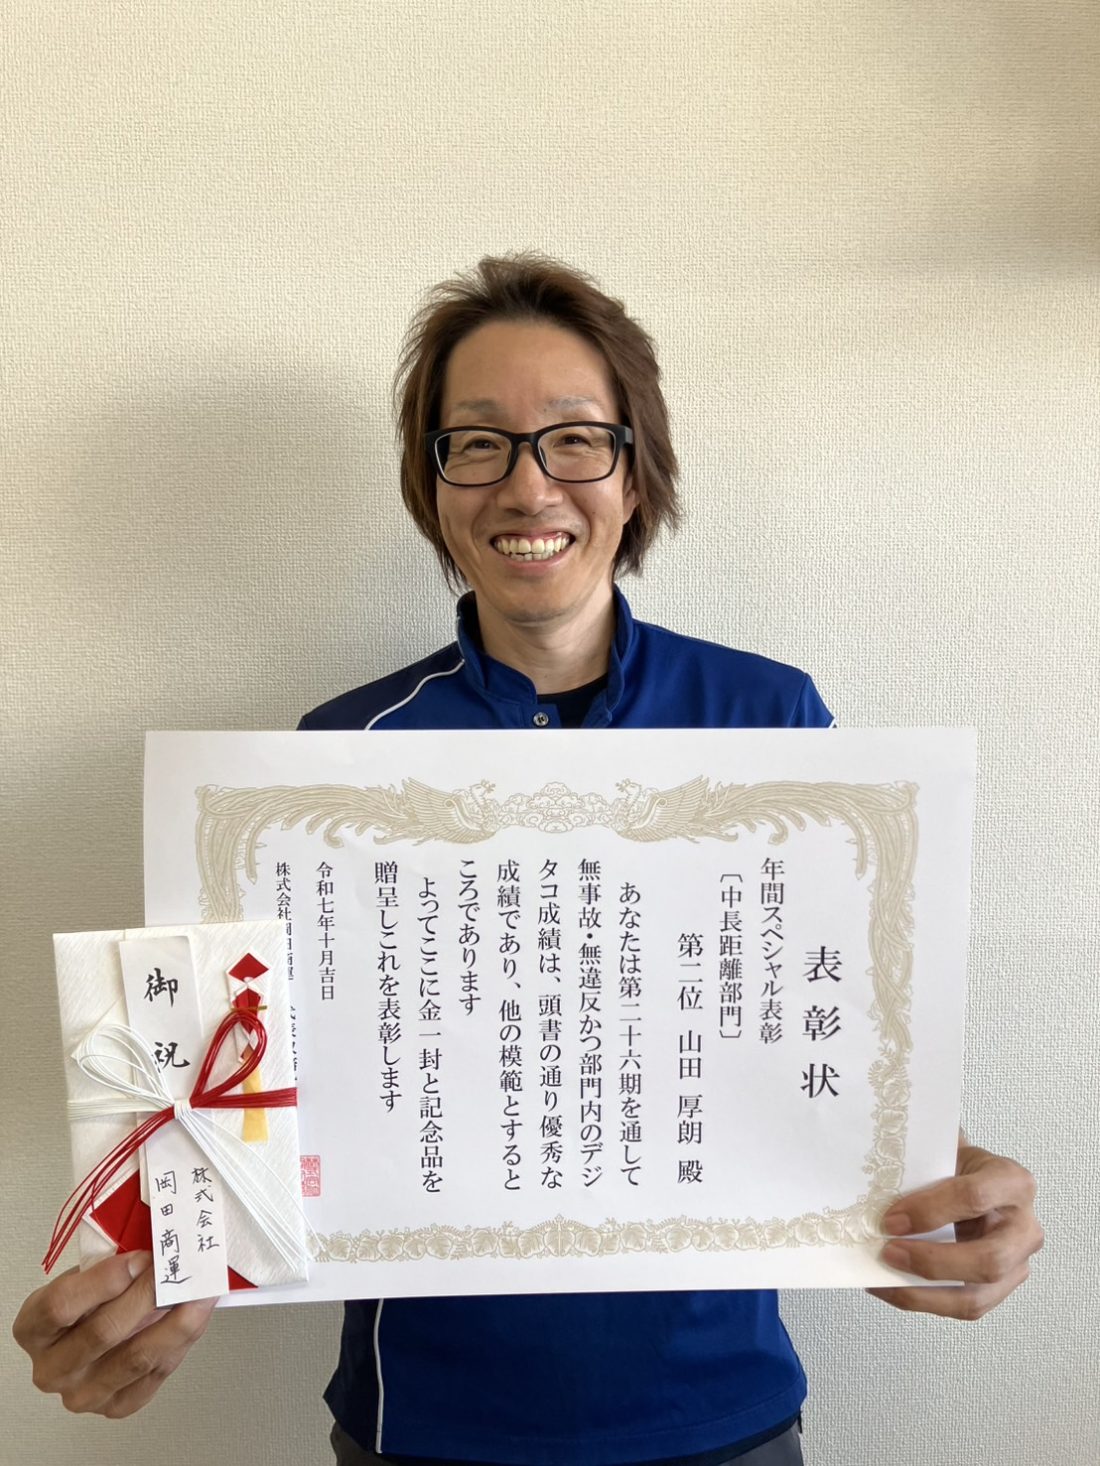 表彰状
年間スペシャル表彰
〔中長距離部門〕
第二位 山田 厚朗 殿
あなたは第二十六期を通して
無事故・無違反かつ部門内のデジ
タコ成績は、頭書の通り優秀な
成績であり、他の模範とすると
ころであります
よってここに金一封と記念品を
贈呈しこれを表彰します
令和七年十月吉日
株式会社岡田商運
御祝
株式会社
岡田商運